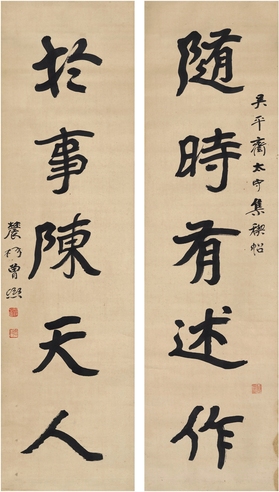 隨時有述作
吳平齋太守集禊帖
於事陳天人
農髯曾熙